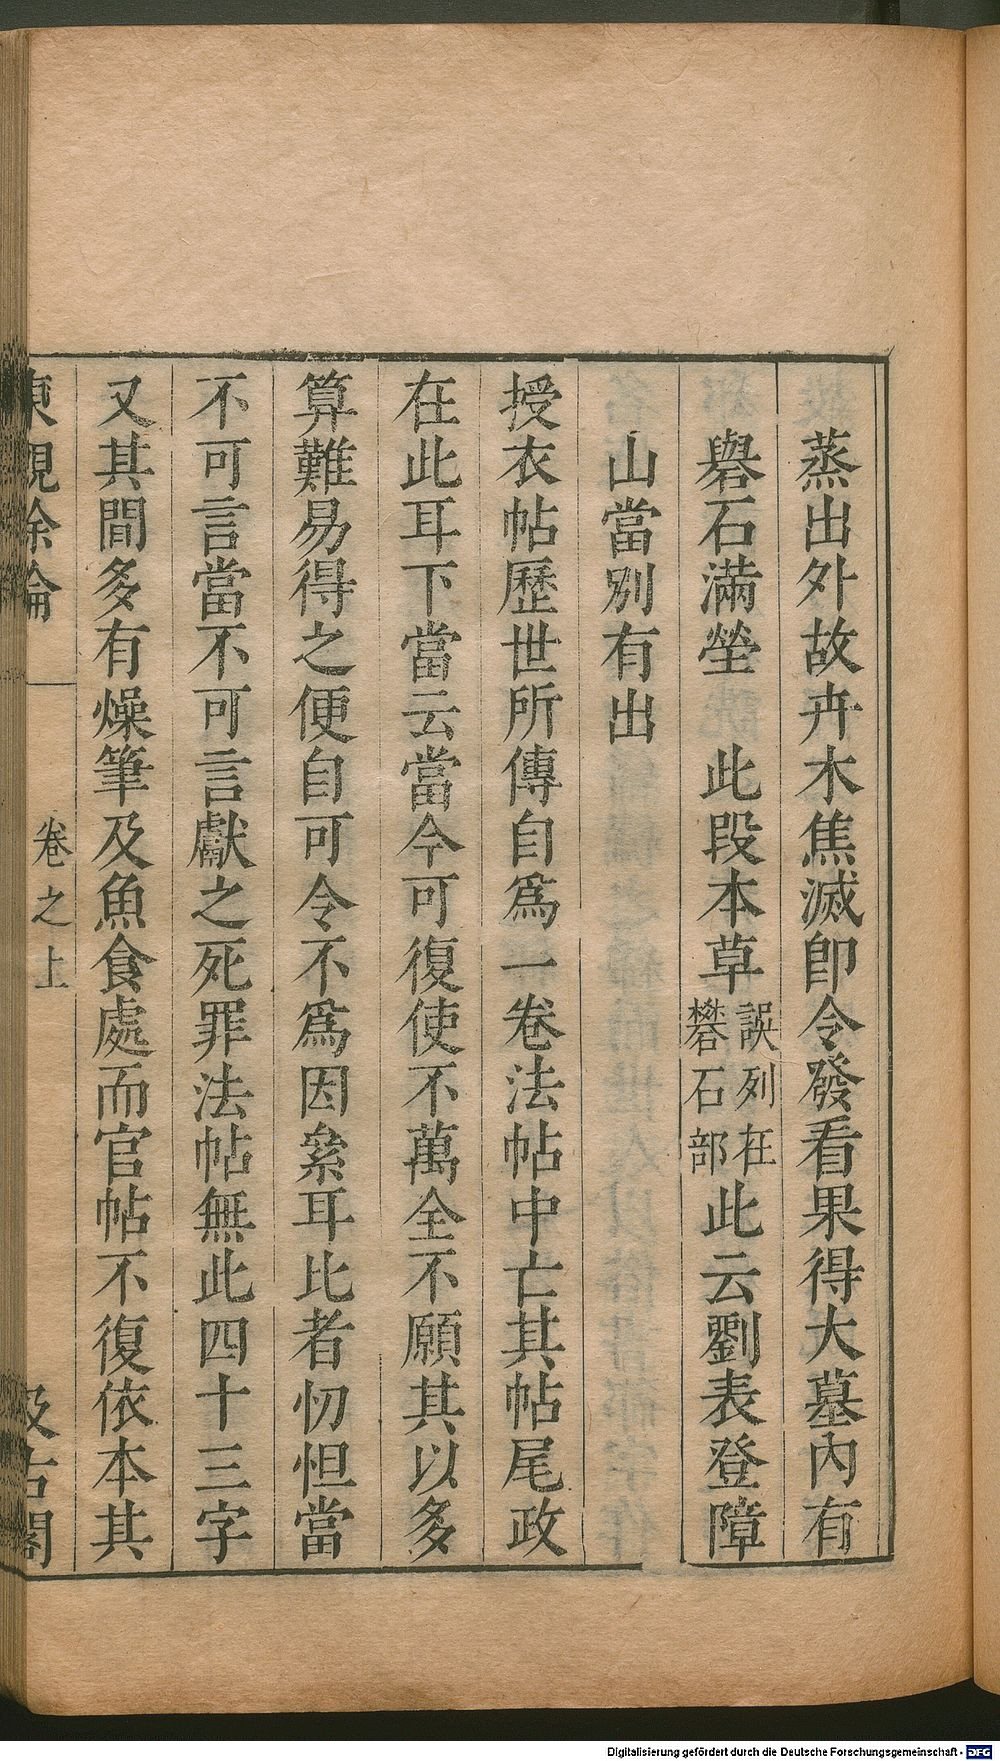 蒸出外故卉木焦滅卽令發看果得大墓內有
礜石滿塋　此段本草誤列在礬石部此云劉表登障
山當別有出
授衣帖歷世所傳自爲一卷法帖中亡其帖尾政
在此耳下當云當今可復使不萬全不願其以多
算難易得之便自可令不爲因絫耳比者忉怛當
不可言當不可言獻之死罪法帖無此四十三字
又其間多有燥筆及魚食處而官帖不復依本其
東觀餘論　卷之上　汲古閣
Digitalisierung gefördert durch die Deutsche Forschungsgemeinschaft - DFG